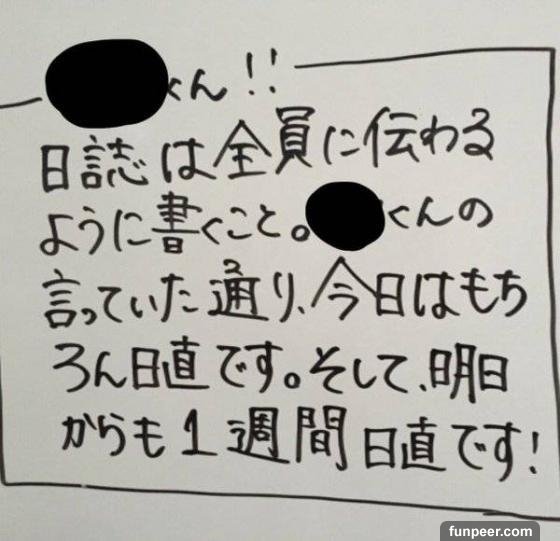 くん!!
日誌は全員に伝わる
ように書くこと。くんの
言っていた通り、今日はもち
ろん日直です。そして、明日
からも1週間日直です!
funpeer.com